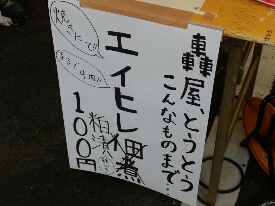 轟屋、とうとう
こんなものまで…
エイヒレ煮
粕漬
100円
焼きたて!!